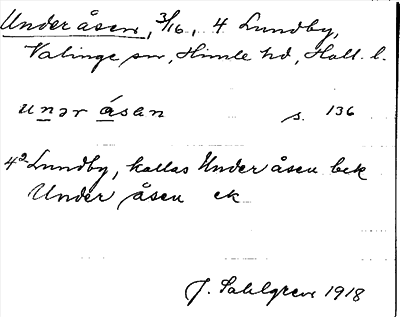 Under åsen, 3/16, 4 Lundby,
Valinge sn, Himle hd, Hall. l.
unər åsan s. 136
4² Lundby, kallas Under åsen bek
Under åsen ek
J. Sahlgren 1918